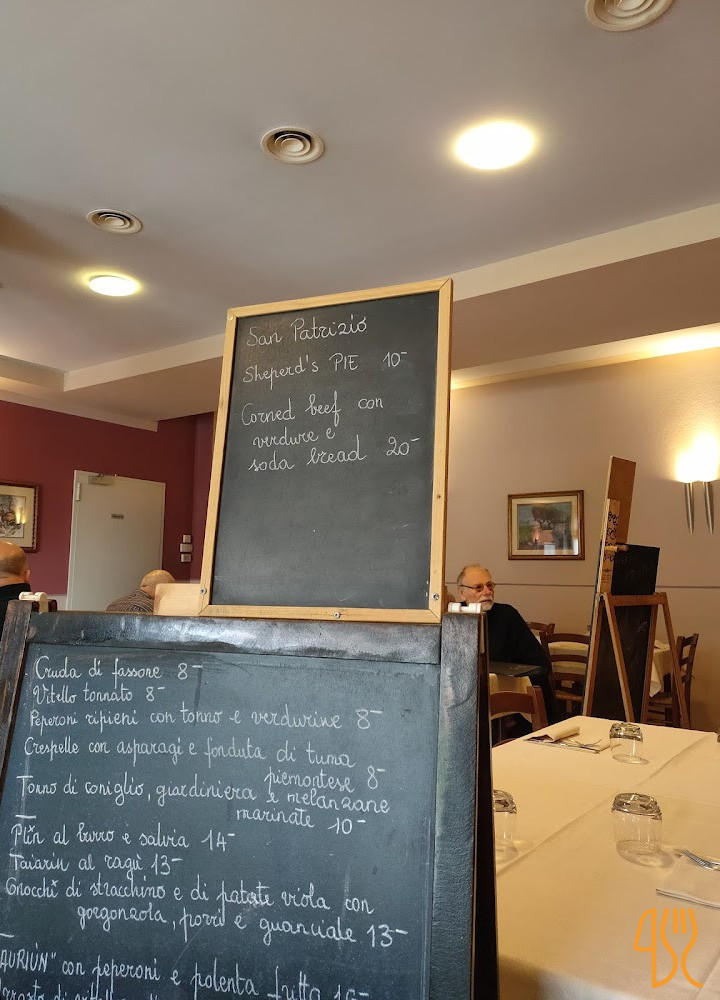 San Patrizio
Sheperd's PIE 10-
Corned beef con
verdure e
soda bread 20-
Cruda di fassone 8-
Vitello tonnato 8-
Peperoni ripieni con tonno e verdurine 8-
Crespelle con asparagi e fonduta di tuma
piemontese 8-
Tonno di coniglio, giardiniera e melanzane
marinate 10-
Plin al burro e salvia 14-
Taiarin al ragù 13-
Gnocchi di stracchino e di patate viola con
gorgonzola, porri e guanciale 13-
AURIÙN" con peperoni e polenta fritta 16-